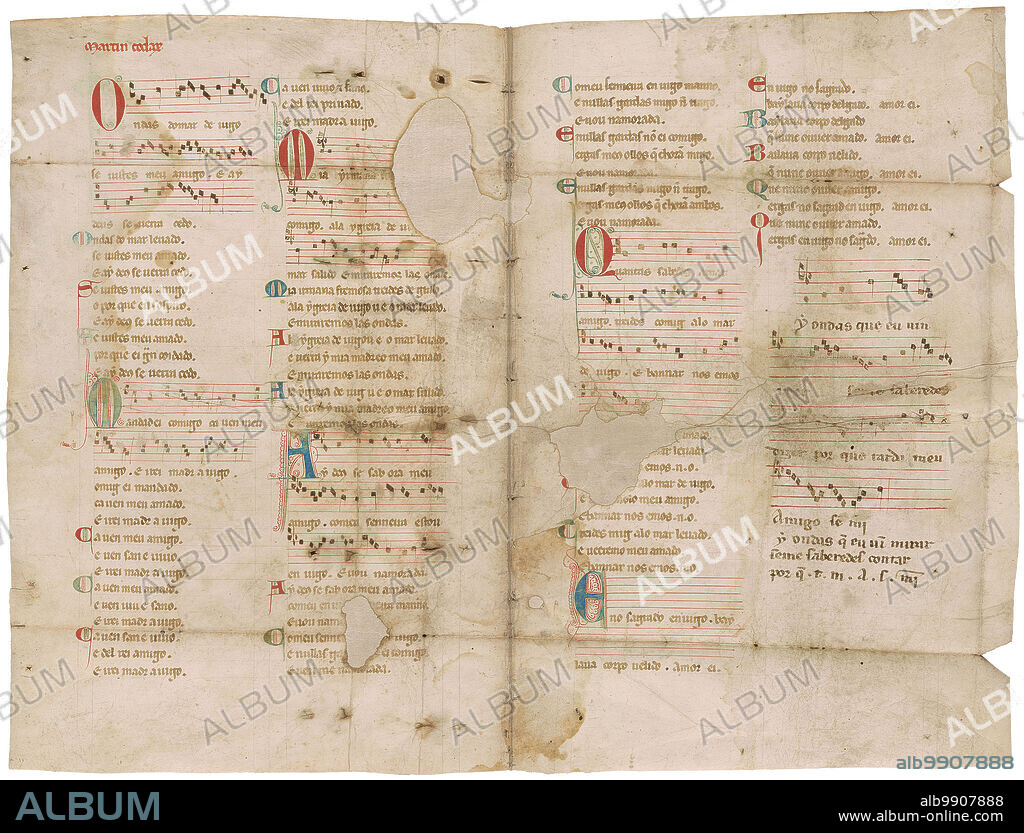 martin codax
Ondas do mar de vigo
se uistes meu amigo. E ay
deus se uerra cedo.
Ondas do mar leuado.
se uistes meu amado.
E ay deo se uerra cedo.
Se uistes meu amigo.
o por que eu sospiro.
E ay deo se uerra cedo.
Se uistes meu amado.
por que ei gran coidado.
E ay deo se uerra cedo.
Mandadei comigo ca uen meu
amigo. E irei madr a uigo.
Comig ei mandado.
ca uen meu amado.
E irei madr a uigo.
Ca uen meu amigo.
e uen san e uiuo.
E irei madr a uigo.
Ca uen meu amado.
e uen uiu e sano.
E irei madr a uigo.
Ca uen san e uiuo.
e del rei amigo.
E irei madr a uigo.
Ca uen uiuo e sano.
e del rei priuado.
E irei madr a uigo.
Mia yrmana
comigo. ala ygreia de ui
mar salido E miraremos las ondas
Mia irmana fremosa treides de grado.
ala ygreia de uigo u e o mar leuado.
E miraremos las ondas.
A la ygreia de uigo u e o mar leuado.
e uerra y mia madre e o meu amado.
E miraremos las ondas.
A la ygreia de uigo u e o mar salido
e uerra y mia madre e o meu amigo.
E miraremos las ondas.
Ay deo se sab ora meu
amigo. comeu senneira estou
en uigo. E uou namorada.
Ay deo se sab ora meu amado.
comeu en uigo senneira manno.
E uou nam
Comeu senn uigo.
e nullas gar ei comigo.
E uou namorada.
Comeu senneira en uigo manno.
e nullas gardas migo non trago.
E uou namorada.
E nullas gardas non ei comigo.
ergas meos ollos que choran migo.
E uou namorada.
E nullas gardas migo non trago.
ergas meos ollos que choran ambos.
E uou namorada.
Quantas sabedes amar
amigo. treides comig alo mar
de uigo. E bannar nos emos
amado.
mar leuado
emos. n. o.
lo mar de uigo.
lo meu amigo.
E bannar nos emos. n. o.
Treides mig alo mar leuado.
e ueeremo meu amado
E bannar nos emos. n. o
Eno sagrado en uigo. bay
laua corpo uelido. Amor ei.
En uigo no sagrado.
baylaua corpo delgado. amor ei.
Baylaua corpo delgado
que nunc ouuer amado. amor ei.
Bailaua corpo uelido.
que nunc ouuer amigo. Amor ei.
Que nunc ouuer amigo.
ergas no sagrad en uigo. Amor ei.
Que nunc ouuer amado.
ergas en uigo no sagrado. Amor ei.
Ay ondas que eu uin
se me saberedes
dizer por que tarda meu
Amigo se mi
Ay ondas que eu uin mirar
se me saberedes contar
por q. t. m. A. s. mi
ALBUM
alb9907888
ALBUM
alb9907888
www.album-online.com